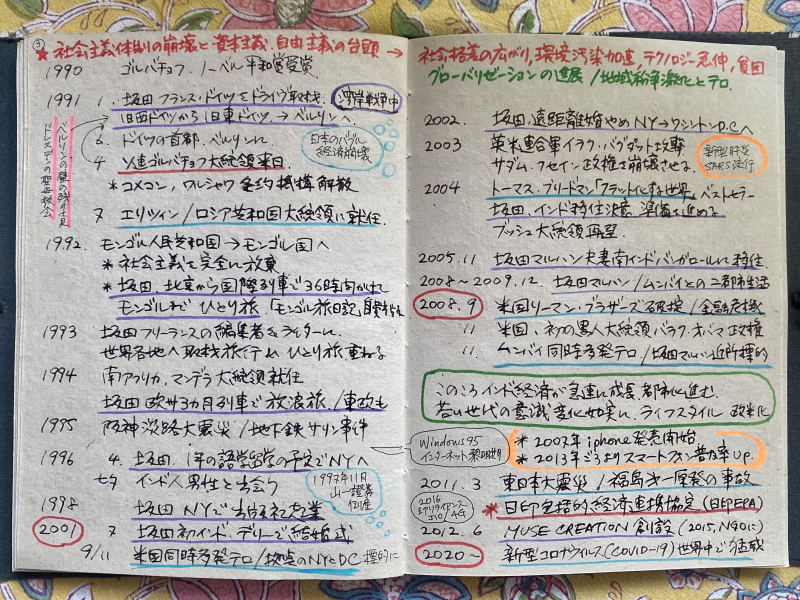 ③
★ 社会主義体制の崩壊と資本主義、自由主義の台頭 →
1990 ゴルバチョフ、ノーベル平和賞受賞
1991 1. 坂田 フランス・ドイツをドライヴ取材. 湾岸戦争中
旧西ドイツから旧東ドイツ → ベルリンへ
6. ドイツの首都、ベルリンに
日本のバブル
経済崩壊
4 ソ連ゴルバチョフ大統領来日
＊コメコン、ワルシャワ条約機構解散
7 エリツィン/ロシア共和国大統領に就任
ベルリンの壁の残りを見
ドレスデンの聖母教会
1992. モンゴル人民共和国 → モンゴル国へ
＊社会主義を完全に放棄
＊坂田、北京から国際列車で36時間かけて
モンゴルまで ひとり旅 「モンゴル旅日記」
1993 坂田フリーランスの編集者&ライターに
世界各地へ取材旅行&ひとり旅重ねる
1994 南アフリカ、マンデラ大統領就任
坂田 欧州3カ月列車で放浪旅/車政も
1995 阪神淡路大震災/地下鉄サリン事件
Windows95
インターネット黎明期
1996 4. 坂田、1年の語学留学の予定でNYへ
七夕 インド人男性と出会う
1997年11月
山一證券
倒産
1998 坂田 NYで出版社を起業
2001 7 坂田初インド・デリーで結婚式
9/11 米国同時多発テロ/拠点のNYとDC 標的に
社会格差の広がり、環境汚染加速、テクノロジー急伸、貧困
グローバリゼーションの進展/地域紛争激化とテロ.
2002. 坂田、遠距離婚やめNY→ワシントンD.C.へ
2003 英米連合軍イラク・バグダット攻撃
サダム・フセイン政権を崩壊させる.
新型肺炎
SARS流行
2004 トーマス・フリードマン「フラット化する世界」ベストセラー
坂田、インド移住決意 準備を進める
ブッシュ大統領再選
2005.11 坂田マルハン夫妻南インド・バンガロールに移住
2008～2009.12. 坂田マルハン/ムンバイとの二都市生活
2008.9 米国リーマン・ブラザーズ破綻/金融危機
11 米国、初の黒人大統領バラク・オバマ政権
11 ムンバイ同時多発テロ/坂田マルハン近所標的
このころインド経済が急速に成長、都市化進む.
若い世代の意識変化如実に、ライフスタイル 欧米化
＊2007年 iphone発売開始
＊2013年ごろよりスマートフォン普及率UP.
2011.3 東日本大震災/福島第一原発の事故
2016
リライアンス
JIO/4G
＊日印包括的経済連携協定(日印EPA)
2012.6 MUSE CREATION 創設 (2015, NGOに)
2020～ 新型コロナウイルス(COVID-19)世界中で